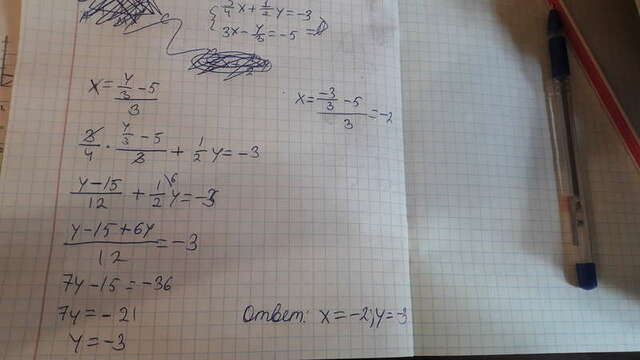 { 3/4 x + 1/2 y = -3
{ 3x - y/3 = -5
x = (y/3 - 5)/3
3/4 · (y/3 - 5)/3 + 1/2 y = -3
(y - 15)/12 + 1/2 y = -3
(y - 15 + 6y)/12 = -3
7y - 15 = -36
7y = -21
y = -3
x = (-3/3 - 5)/3 = -2
Ответ: x = -2; y = -3